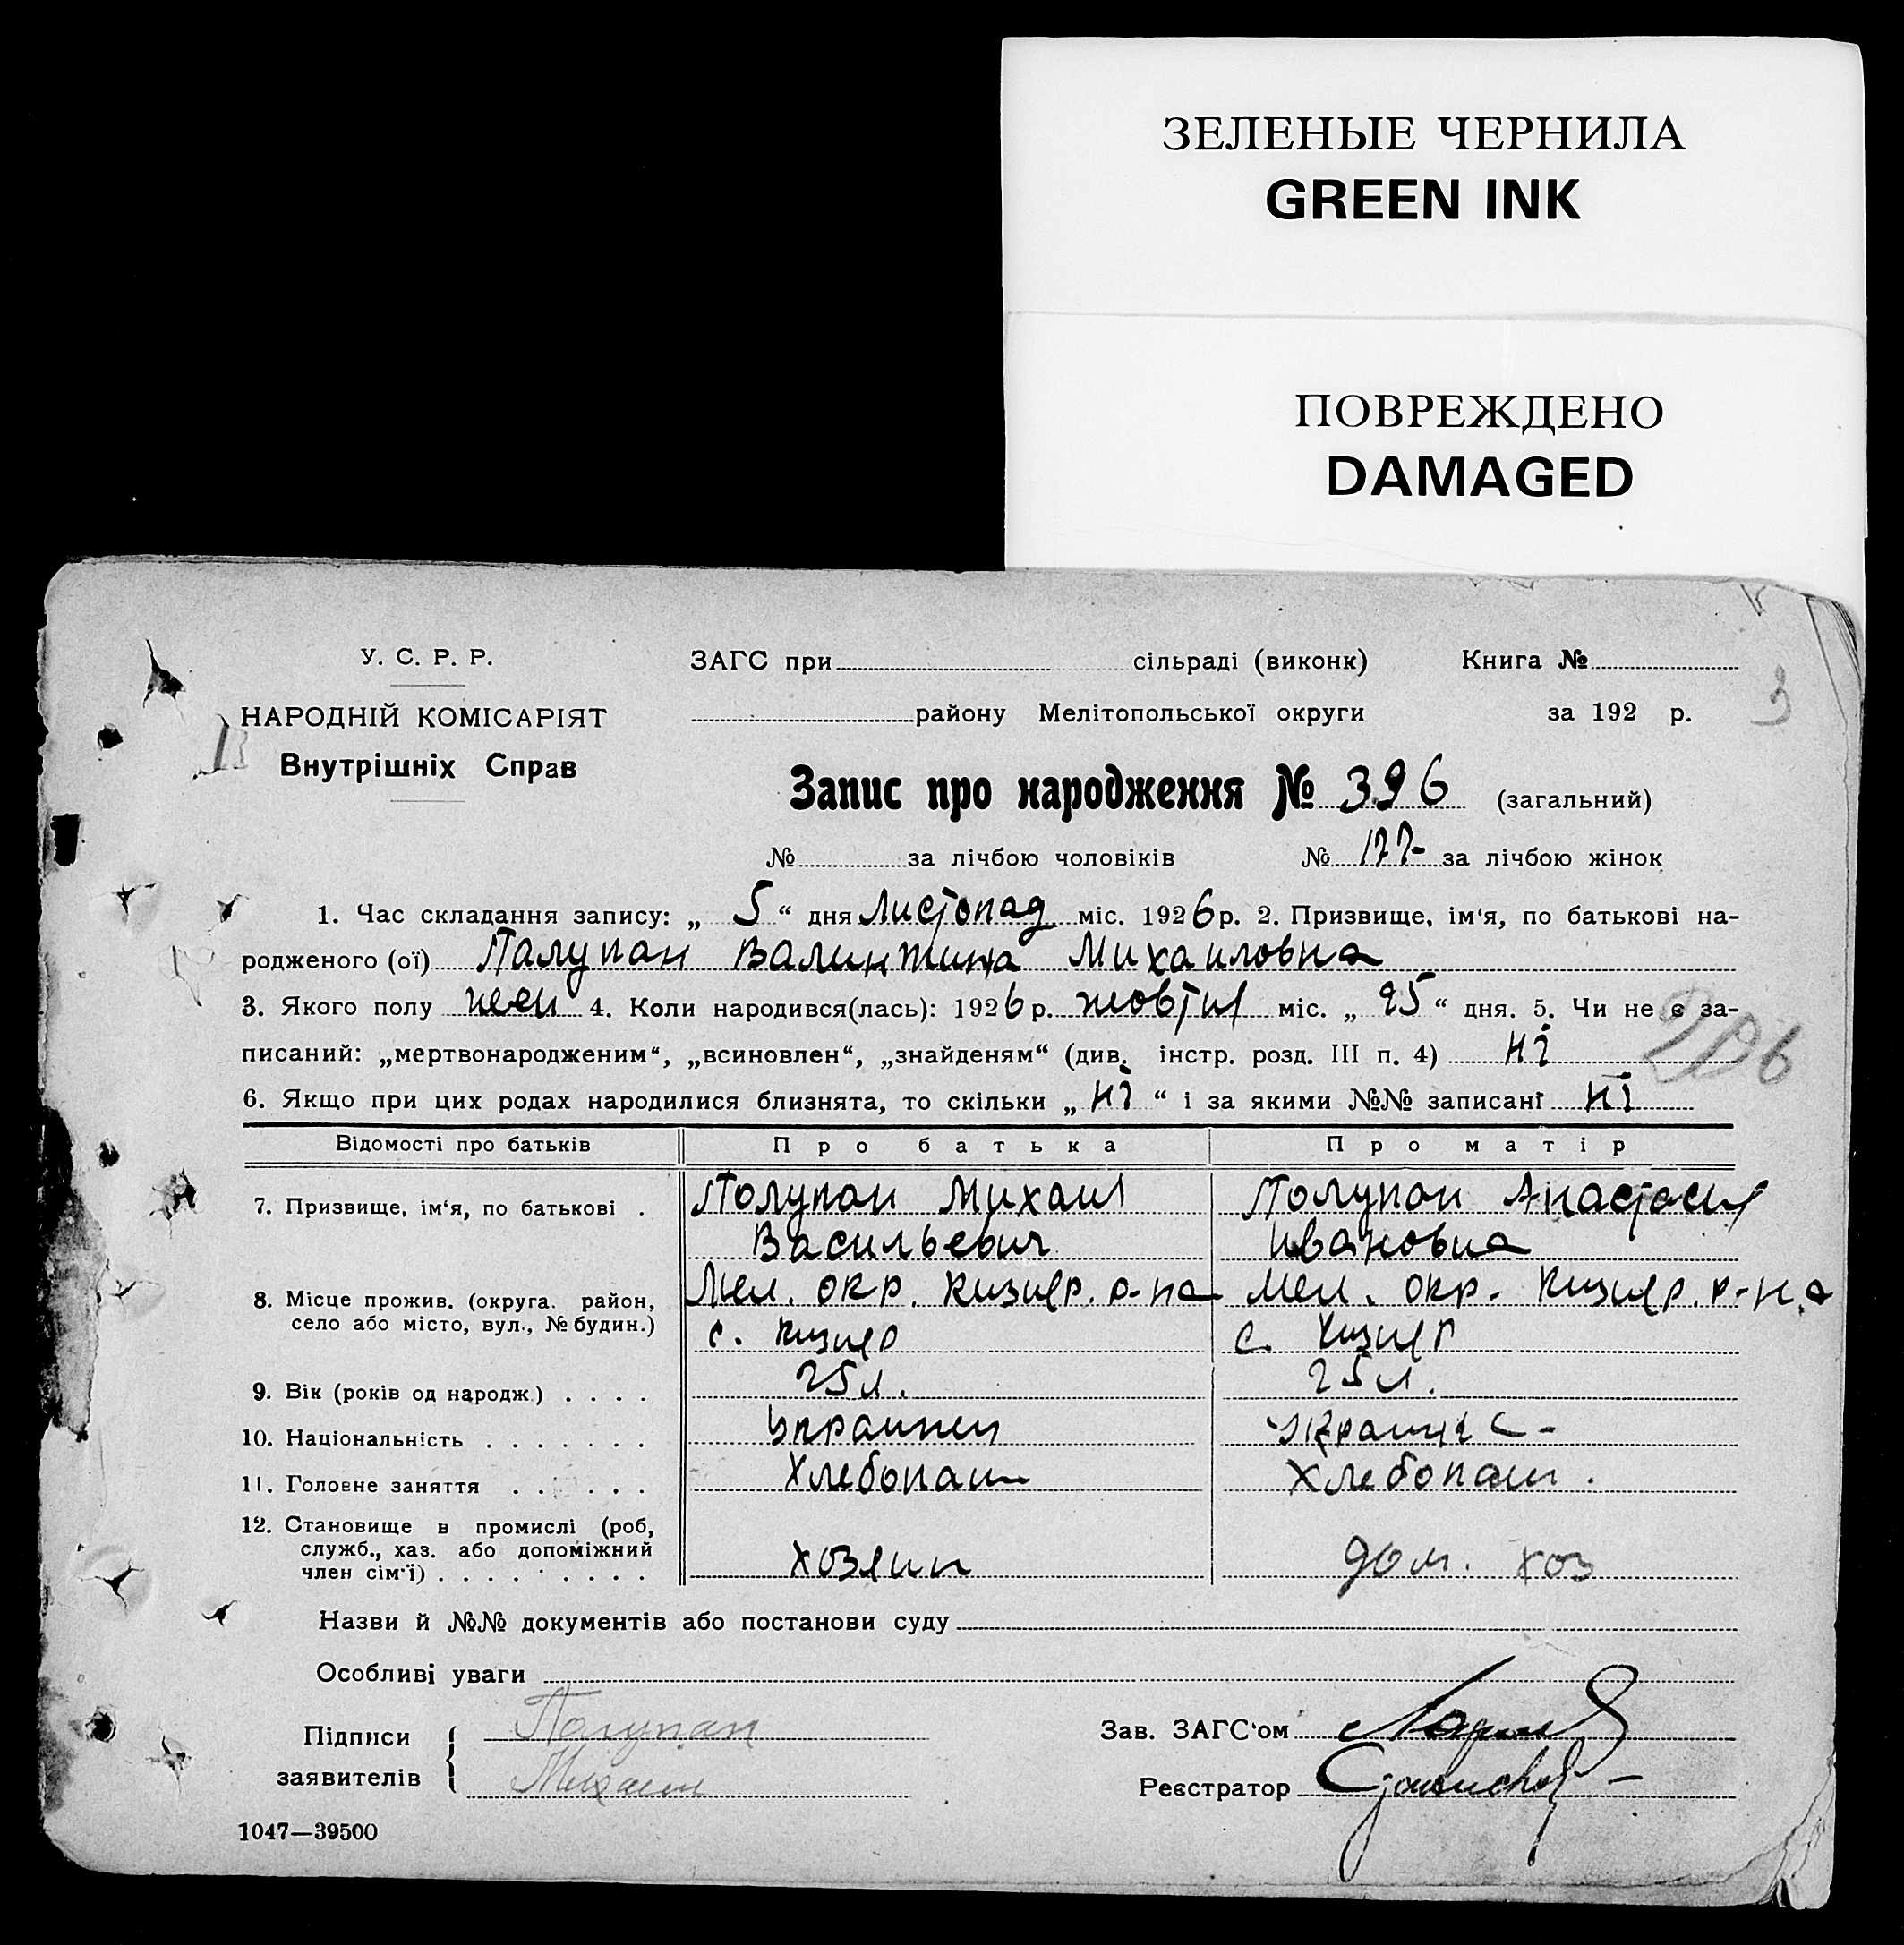 ЗЕЛЕНЫЕ ЧЕРНИЛА
GREEN INK
ПОВРЕЖДЕНО
DAMAGED
У. С. Р. Р.
НАРОДНІЙ КОМІСАРІЯТ
Внутрішніх Справ
ЗАГС при сільраді (виконк) Книга №
району Мелітопольської округи за 192 р.
3
Запис про народження № 396 (загальний)
№ за лічбою чоловіків № 177 за лічбою жінок
1. Час складання запису: „ 5 “ дня Листопад міс. 1926 р. 2. Призвище, ім'я, по батькові на-
родженого (ої) Палупан Валинтина Михаиловна
3. Якого полу жен 4. Коли народився(лась): 1926 р. жовтня міс. „ 25 “ дня. 5. Чи не є за-
писаний: „мертвонародженим“, „всиновлен“, „знайденям“ (див. інстр. розд. III п. 4) ні
6. Якщо при цих родах народилися близнята, то скільки „ ні “ і за якими №№ записані ні
Відомості про батьків Про батька Про матір
7. Призвище, ім'я, по батькові . Полупан Михаил Полупан Анастасия
Васильевич Ивановна
8. Місце прожив. (округа. район, Мел. окр. Кизияр. р-на Мел. окр. Кизияр. р-на
село або місто, вул., № будин.) с. Кизияр с. Кизияр
9. Вік (років од народж.) . . . . 25 л. 25 л.
10. Національність . . . . . . . Украинец
11. Головне заняття . . . . . . Хлебопаш Хлебопаш.
12. Становище в промислі (роб,
служб., хаз. або допоміжний
член сім'ї) . . . . . . . . . хозяин дом. хоз
Назви й №№ документів або постанови суду
Особливі уваги
Підписи Полупан Зав. ЗАГС'ом
заявителів Михаил Реєстратор
1047—39500